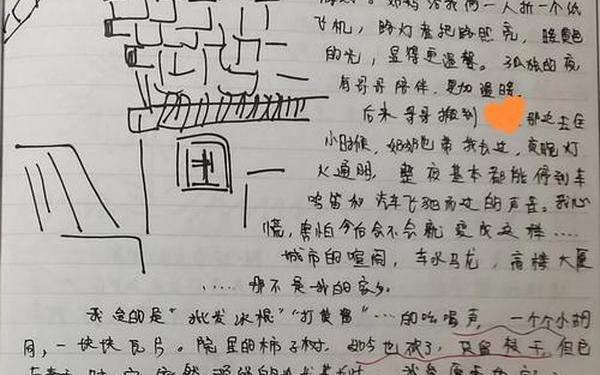 奶奶给我俩一人折一个纸
飞机,路灯差把路照亮,暖黄色
的光,显得更温馨。孤独的夜
有哥哥陪伴,更加温暖。
后来哥哥搬到 那边去住
小时候,奶奶也带我去过,夜晚灯
火通明,整夜基本都能听到车
鸣笛和汽车飞驰而过的声音。我心
慌,害怕今后会不会就变成这样……
城市的喧闹,车水马龙,高楼大厦
……哪不是我的家乡。
我爱的是“批发冰棍”“打黄酱”……的吆喝声,一个个小胡
同,一块块瓦片。院里的柿子树,如今也被了,只留枝干,但它